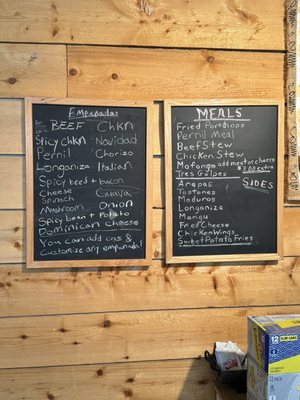 Empanadas
BEEF Chkn
Spicy chkn Navidad
Pernil Chorizo
Longaniza Italian
Spicy beef & bacon
Cheese Guava
Spinach
Mushroom Onion
Spicy bean & Potato
Dominican cheese
You can add cas &
Customize any empanada!
MEALS
Fried Porkchops
Pernil Meal
Beef Stew
Chicken Stew
Mofongo add meat or cheese
$2.00 extra
Tres Golpes
Arepas SIDES
Tostones
Maduros
Longaniza
Mangu
Fried Cheese
Chicken Wings
Sweet Potato Fries
12
12